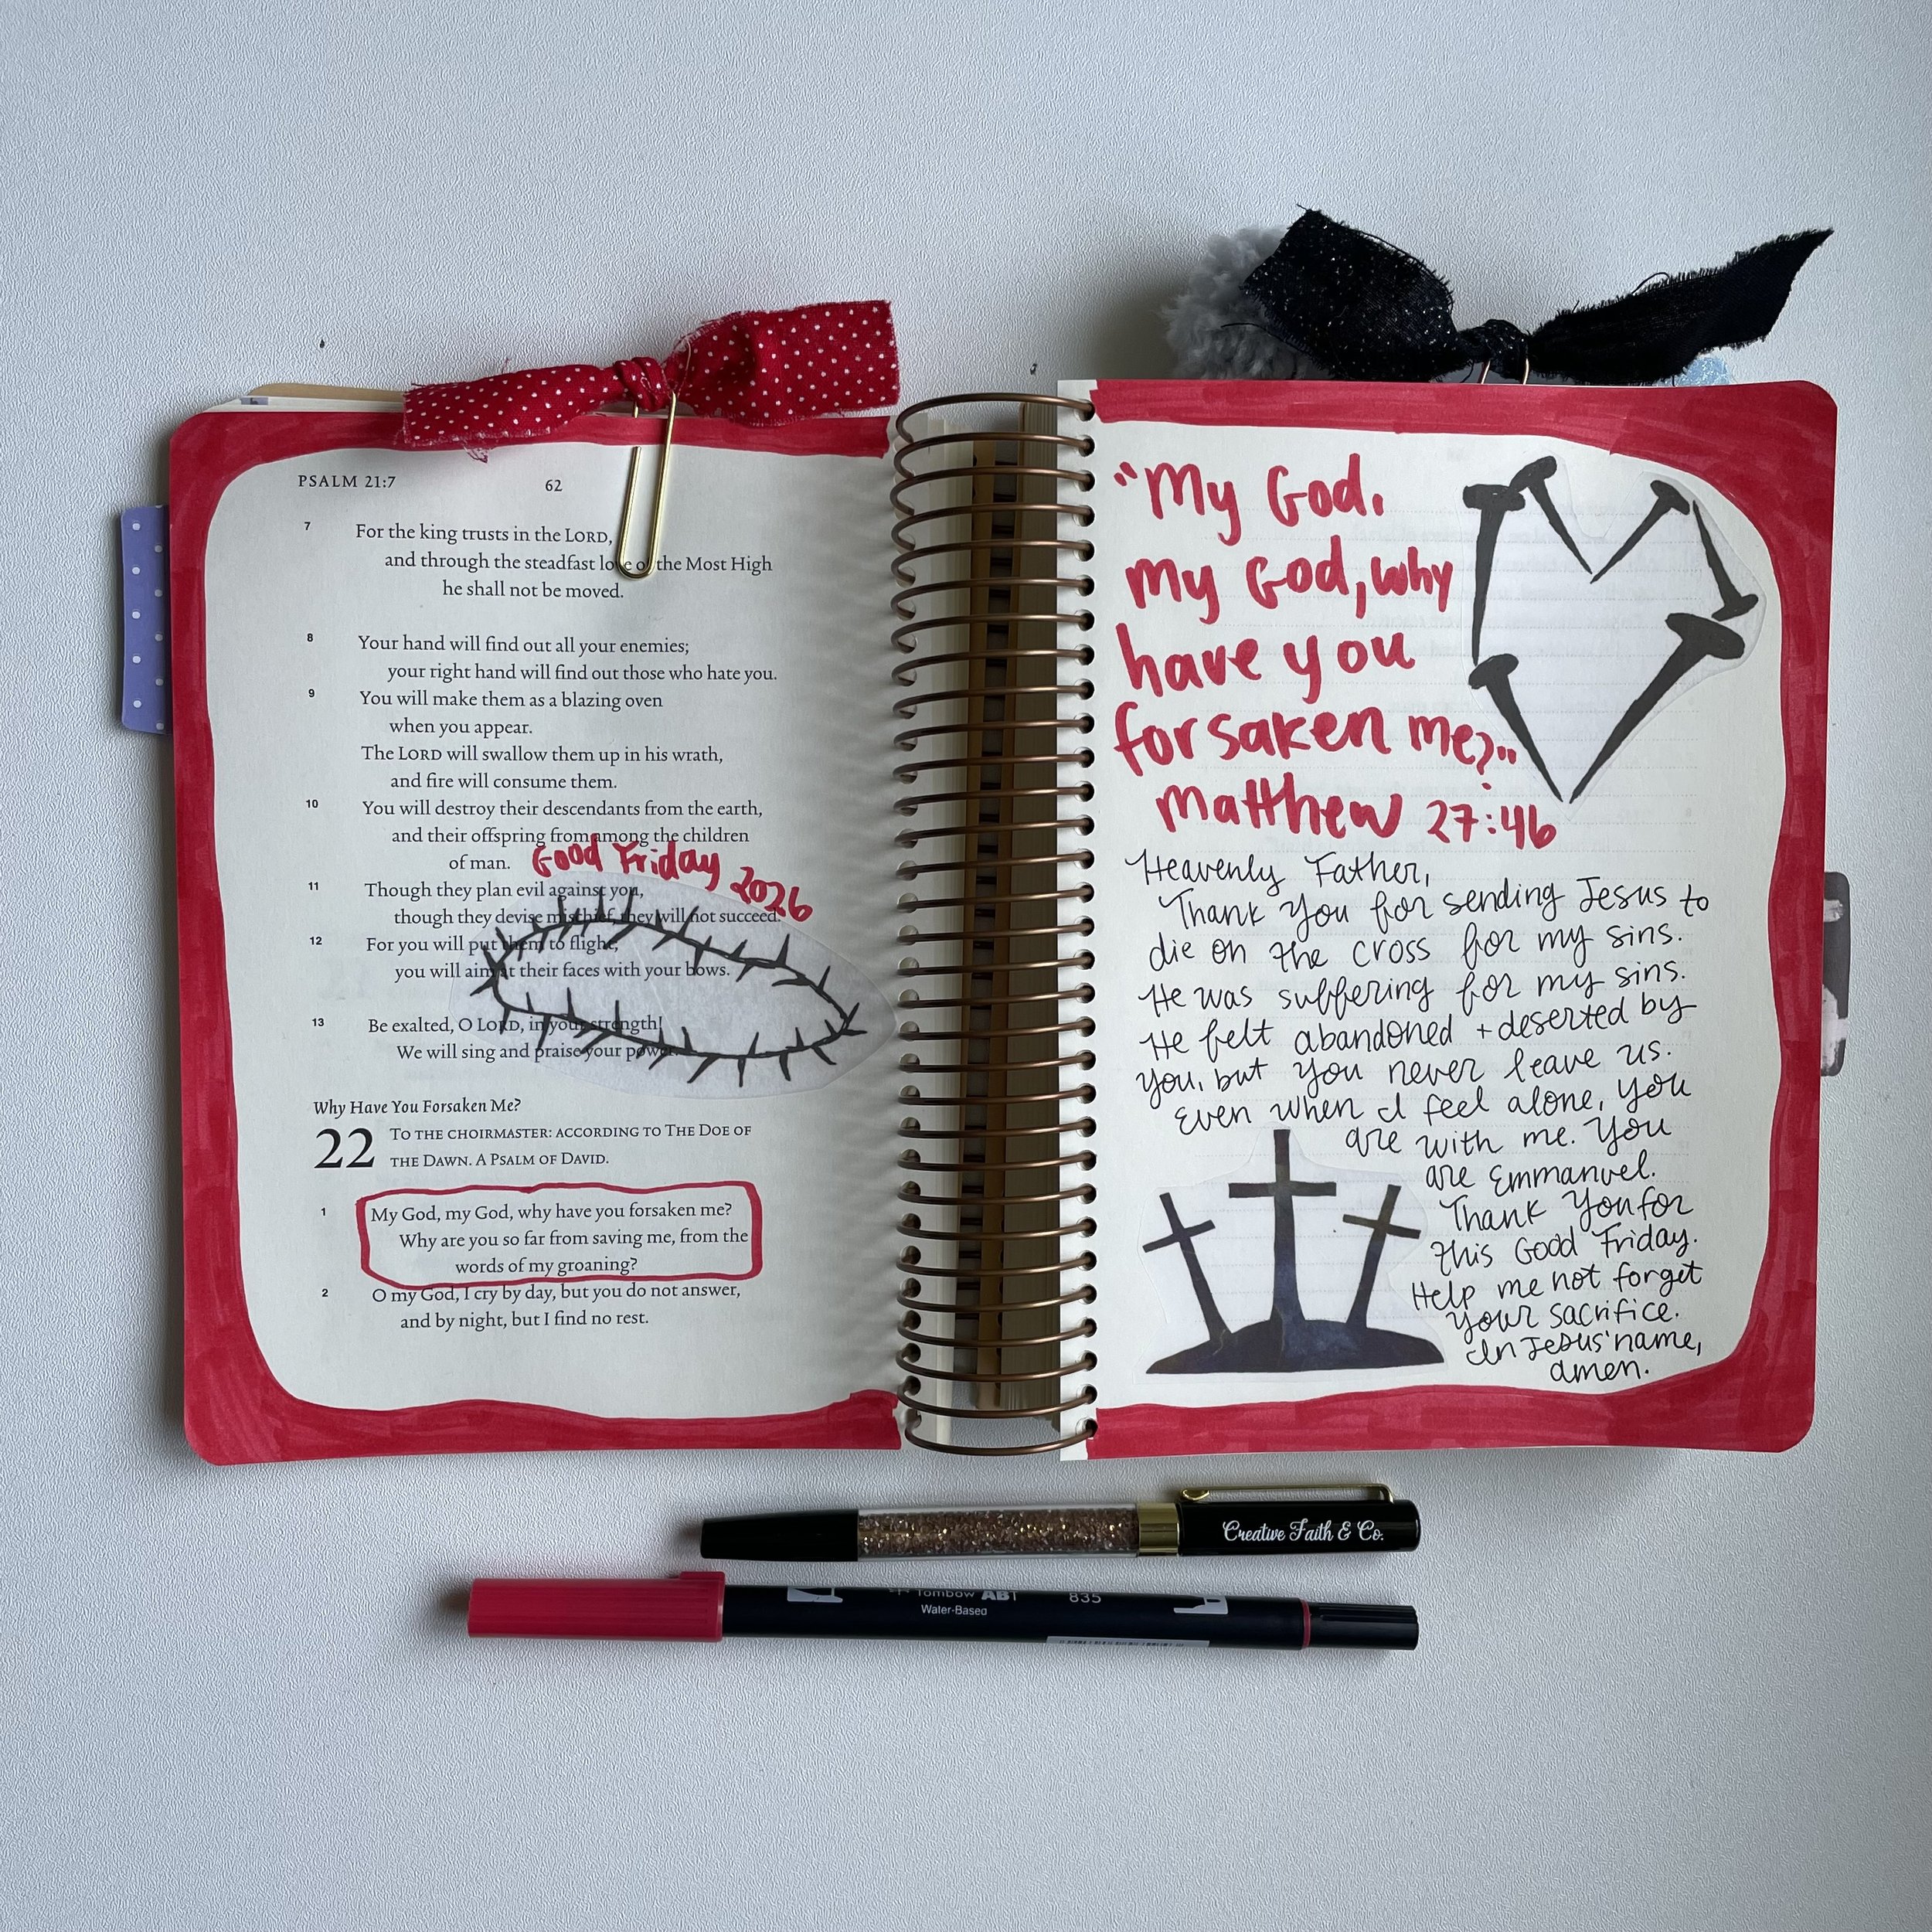 PSALM 21:7 62
7 For the king trusts in the LORD,
and through the steadfast love of the Most High
he shall not be moved.
8 Your hand will find out all your enemies;
your right hand will find out those who hate you.
9 You will make them as a blazing oven
when you appear.
The LORD will swallow them up in his wrath,
and fire will consume them.
10 You will destroy their descendants from the earth,
and their offspring from among the children
of man.
Good Friday 2026
11 Though they plan evil against you,
though they devise mischief, they will not succeed.
12 For you will put them to flight;
you will aim at their faces with your bows.
13 Be exalted, O LORD, in your strength!
We will sing and praise your power.
Why Have You Forsaken Me?
22 TO THE CHOIRMASTER: ACCORDING TO THE DOE OF
THE DAWN. A PSALM OF DAVID.
1 My God, my God, why have you forsaken me?
Why are you so far from saving me, from the
words of my groaning?
2 O my God, I cry by day, but you do not answer,
and by night, but I find no rest.
"My God,
my God, why
have you
forsaken me?"
Matthew 27:46
Heavenly Father,
Thank You for sending Jesus to
die on the cross for my sins.
He was suffering for my sins.
He felt abandoned + deserted by
You, but You never leave us.
Even when I feel alone, You
are with me. You
are Emmanuel.
Thank You for
this Good Friday.
Help me not forget
Your sacrifice.
In Jesus' name,
amen.
Creative Faith & Co.
Tombow ABT 835
Water-Based